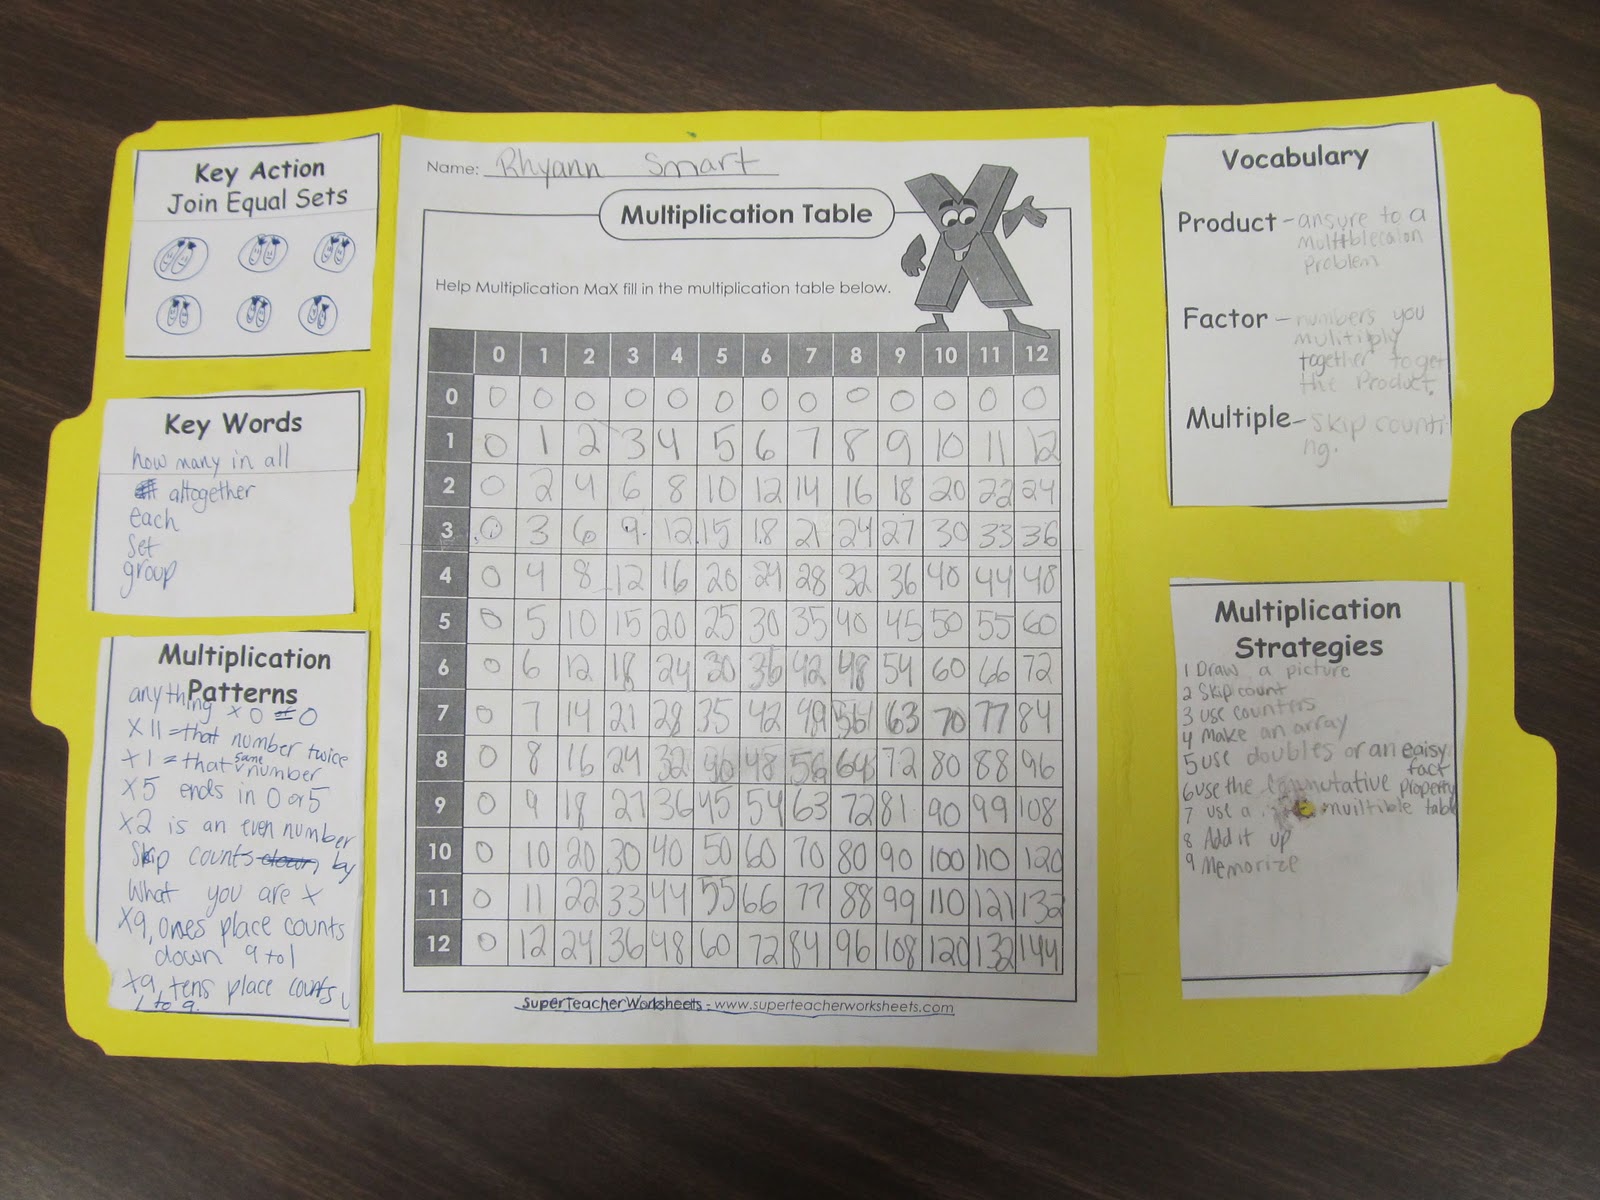 Key Action
Join Equal Sets
Key Words
how many in all
altogether
each
set
group
Multiplication
Patterns
anything x 0 = 0
x 11 = that number twice
x 1 = that same number
x 5 ends in 0 or 5
x2 is an even number
Skip counts down by
What you are x
x9, ones place counts
down 9 to 1
x9, tens place counts
1 to 9.
Name: Rhyann Smart
Multiplication Table
Help Multiplication MaX fill in the multiplication table below.
0 1 2 3 4 5 6 7 8 9 10 11 12
0 0 0 0 0 0 0 0 0 0 0 0 0 0
1 0 1 2 3 4 5 6 7 8 9 10 11 12
2 0 2 4 6 8 10 12 14 16 18 20 22 24
3 0 3 6 9 12 15 18 21 24 27 30 33 36
4 0 4 8 12 16 20 24 28 32 36 40 44 48
5 0 5 10 15 20 25 30 35 40 45 50 55 60
6 0 6 12 18 24 30 36 42 48 54 60 66 72
7 0 7 14 21 28 35 42 49 56 63 70 77 84
8 0 8 16 24 32 40 48 56 64 72 80 88 96
9 0 9 18 27 36 45 54 63 72 81 90 99 108
10 0 10 20 30 40 50 60 70 80 90 100 110 120
11 0 11 22 33 44 55 66 77 88 99 110 121 132
12 0 12 24 36 48 60 72 84 96 108 120 132 144
SuperTeacherWorksheets - www.superteacherworksheets.com
Vocabulary
Product - ansure to a
multiblecaion
problem
Factor - numbers you
mulitiply
together to get
the Product.
Multiple - skip counti
ng.
Multiplication
Strategies
1 Draw a picture
2 Skip count
3 use counters
4 Make an array
5 use doubles or an eaisy
fact
6 use the commutative property
7 use a muiltible table
8 Add it up
9 Memorize